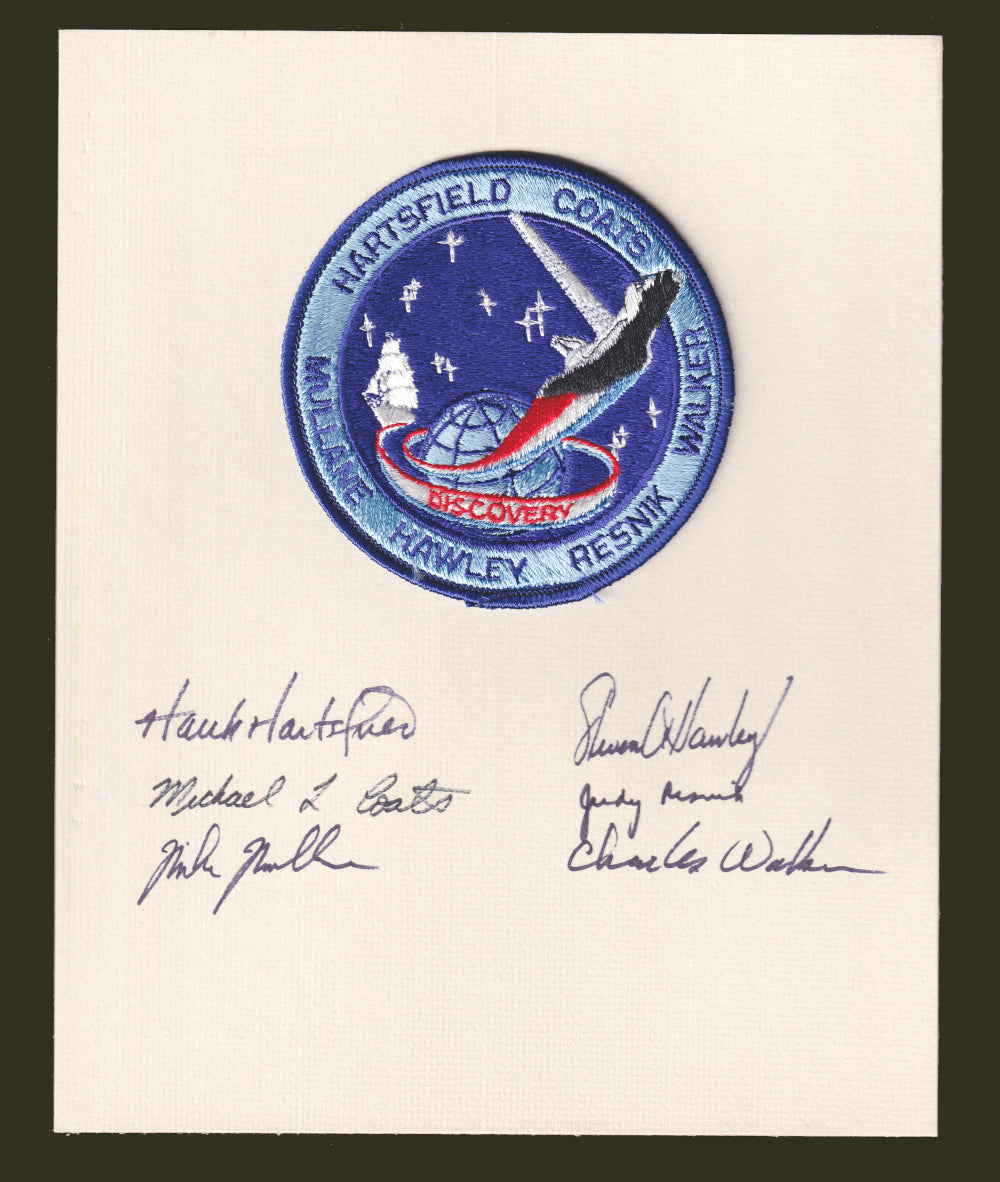 HARTSFIELD COATS WALKER RESNIK HAWLEY MULLANE
DISCOVERY
Hank Hartsfield
Michael L Coats
Mike Mullane
Steven A Hawley
Judy Resnik
Charles Walker